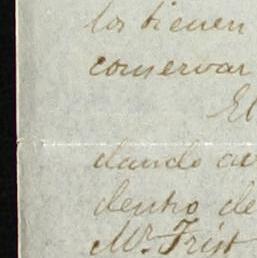 los tienen
conservar
El
dando av
dentro de
Mr. Trist